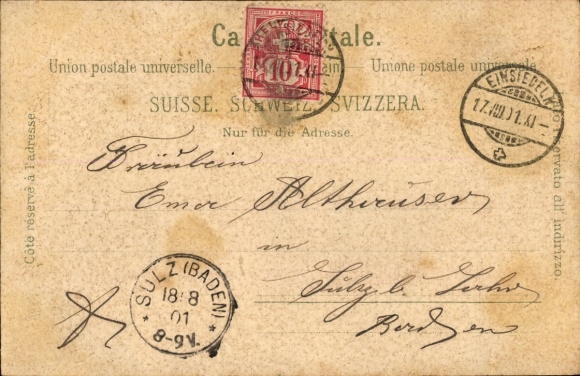 Ca tale.
Union postale universelle. Unione postale universale.
SUISSE. SCHWEIZ. SVIZZERA.
Nur für die Adresse.
Côté réservé à l'adresse.
riservato all' indirizzo.
FRANCO
10
EINSIEDELN
17.VIII.01.XI
Fräulein
Althauser
in
Sulz b. Lahr
Baden
SULZ (BADEN)
18 8
01
8-9V.